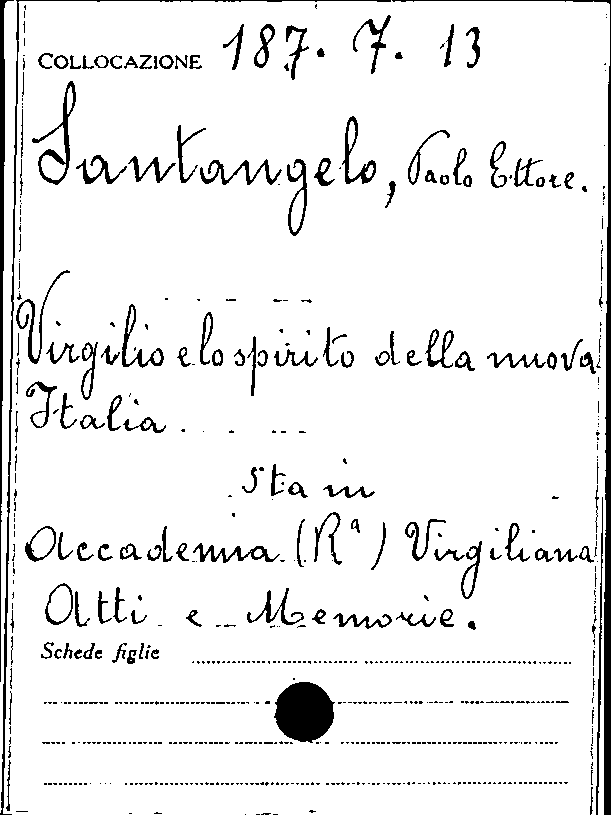 COLLOCAZIONE 187. 7. 13
Santangelo, Paolo Ettore.
Virgilio e lo spirito della nuova
Italia
Sta in
Accademia (Rª) Virgiliana
Atti e Memorie.
Schede figlie